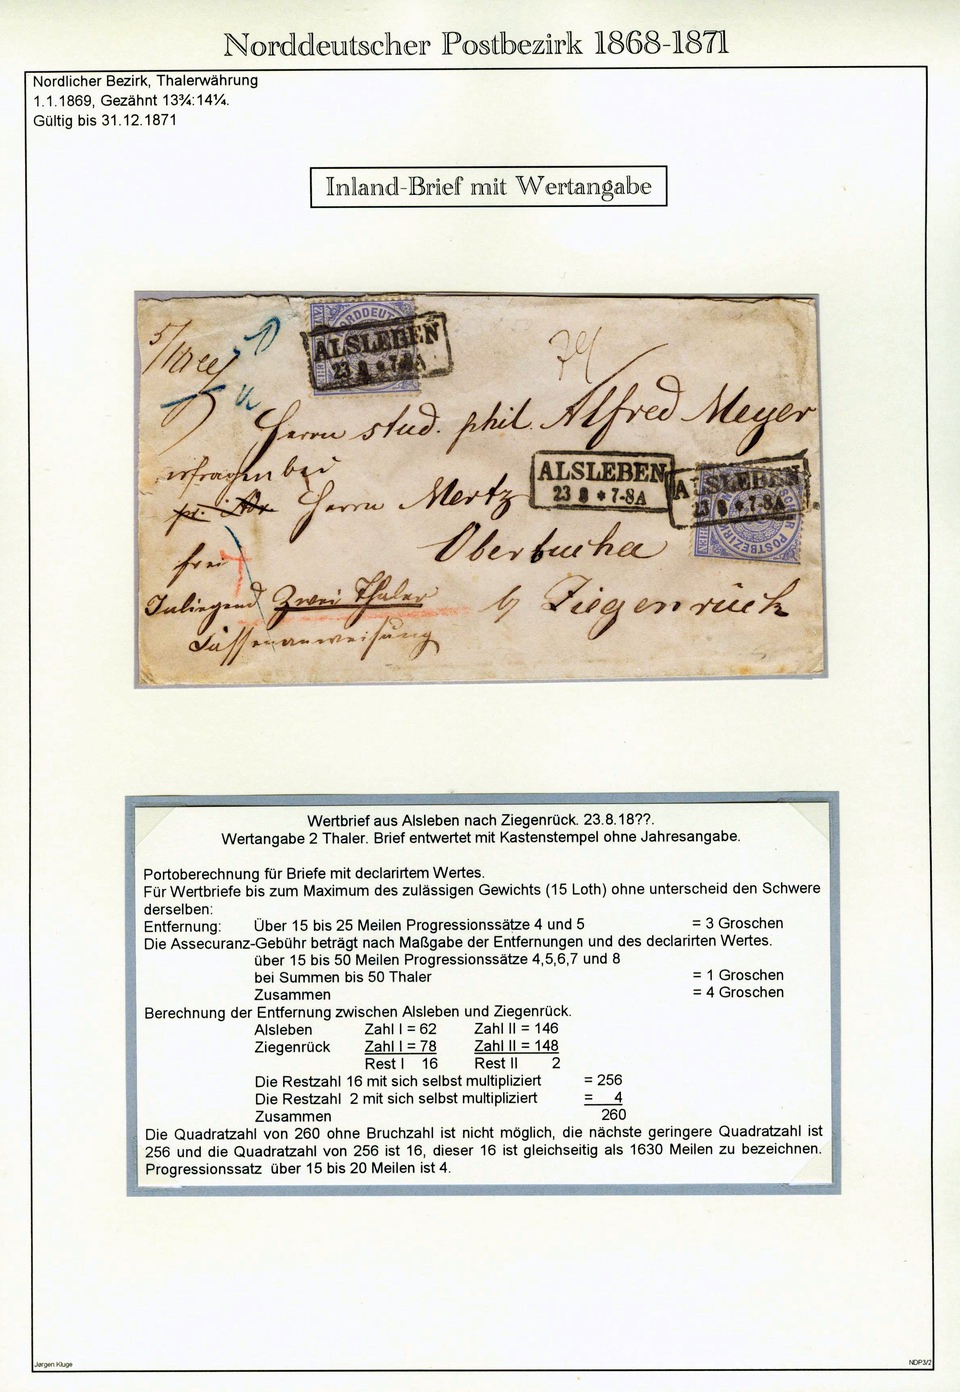 Norddeutscher Postbezirk 1868-1871
Nordlicher Bezirk, Thalerwährung
1.1.1869, Gezähnt 13¾:14¼.
Gültig bis 31.12.1871
Inland-Brief mit Wertangabe
ALSLEBEN
23 8 * 7-8A
Herrn stud. phil. Alfred Meyer
erfragen bei
pr. Adr. Herrn Mertz
ALSLEBEN
23 8 * 7-8A
ALSLEBEN
23 8 * 7-8A
POSTBEZIRK
frei
Inliegend Zwei Thaler
Kassenanweisung
Ziegenrück
Wertbrief aus Alsleben nach Ziegenrück. 23.8.18??.
Wertangabe 2 Thaler. Brief entwertet mit Kastenstempel ohne Jahresangabe.
Portoberechnung für Briefe mit declarirtem Wertes.
Für Wertbriefe bis zum Maximum des zulässigen Gewichts (15 Loth) ohne unterscheid den Schwere
derselben:
Entfernung: Über 15 bis 25 Meilen Progressionssätze 4 und 5 = 3 Groschen
Die Assecuranz-Gebühr beträgt nach Maßgabe der Entfernungen und des declarirten Wertes.
über 15 bis 50 Meilen Progressionssätze 4,5,6,7 und 8
bei Summen bis 50 Thaler = 1 Groschen
Zusammen = 4 Groschen
Berechnung der Entfernung zwischen Alsleben und Ziegenrück.
Alsleben Zahl I = 62 Zahl II = 146
Ziegenrück Zahl I = 78 Zahl II = 148
Rest I 16 Rest II 2
Die Restzahl 16 mit sich selbst multipliziert = 256
Die Restzahl 2 mit sich selbst multipliziert = 4
Zusammen 260
Die Quadratzahl von 260 ohne Bruchzahl ist nicht möglich, die nächste geringere Quadratzahl ist
256 und die Quadratzahl von 256 ist 16, dieser 16 ist gleichseitig als 1630 Meilen zu bezeichnen.
Progressionssatz über 15 bis 20 Meilen ist 4.
Jørgen Kluge
NDP3/2